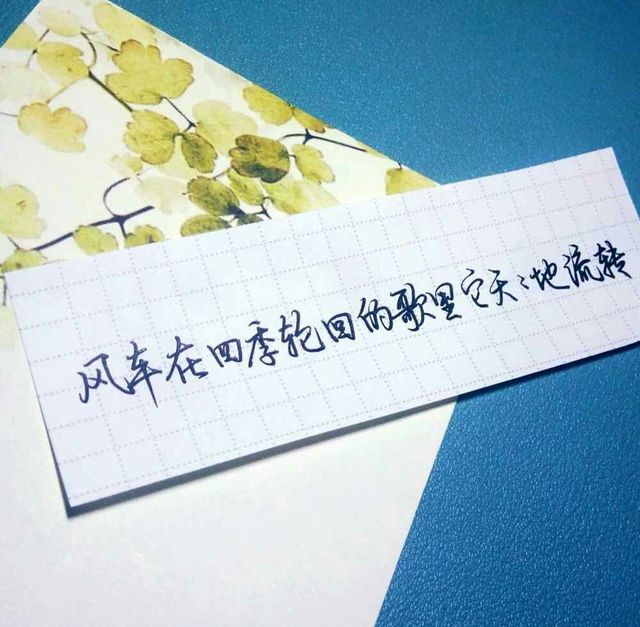 风车在四季轮回的歌里它天〻地流转